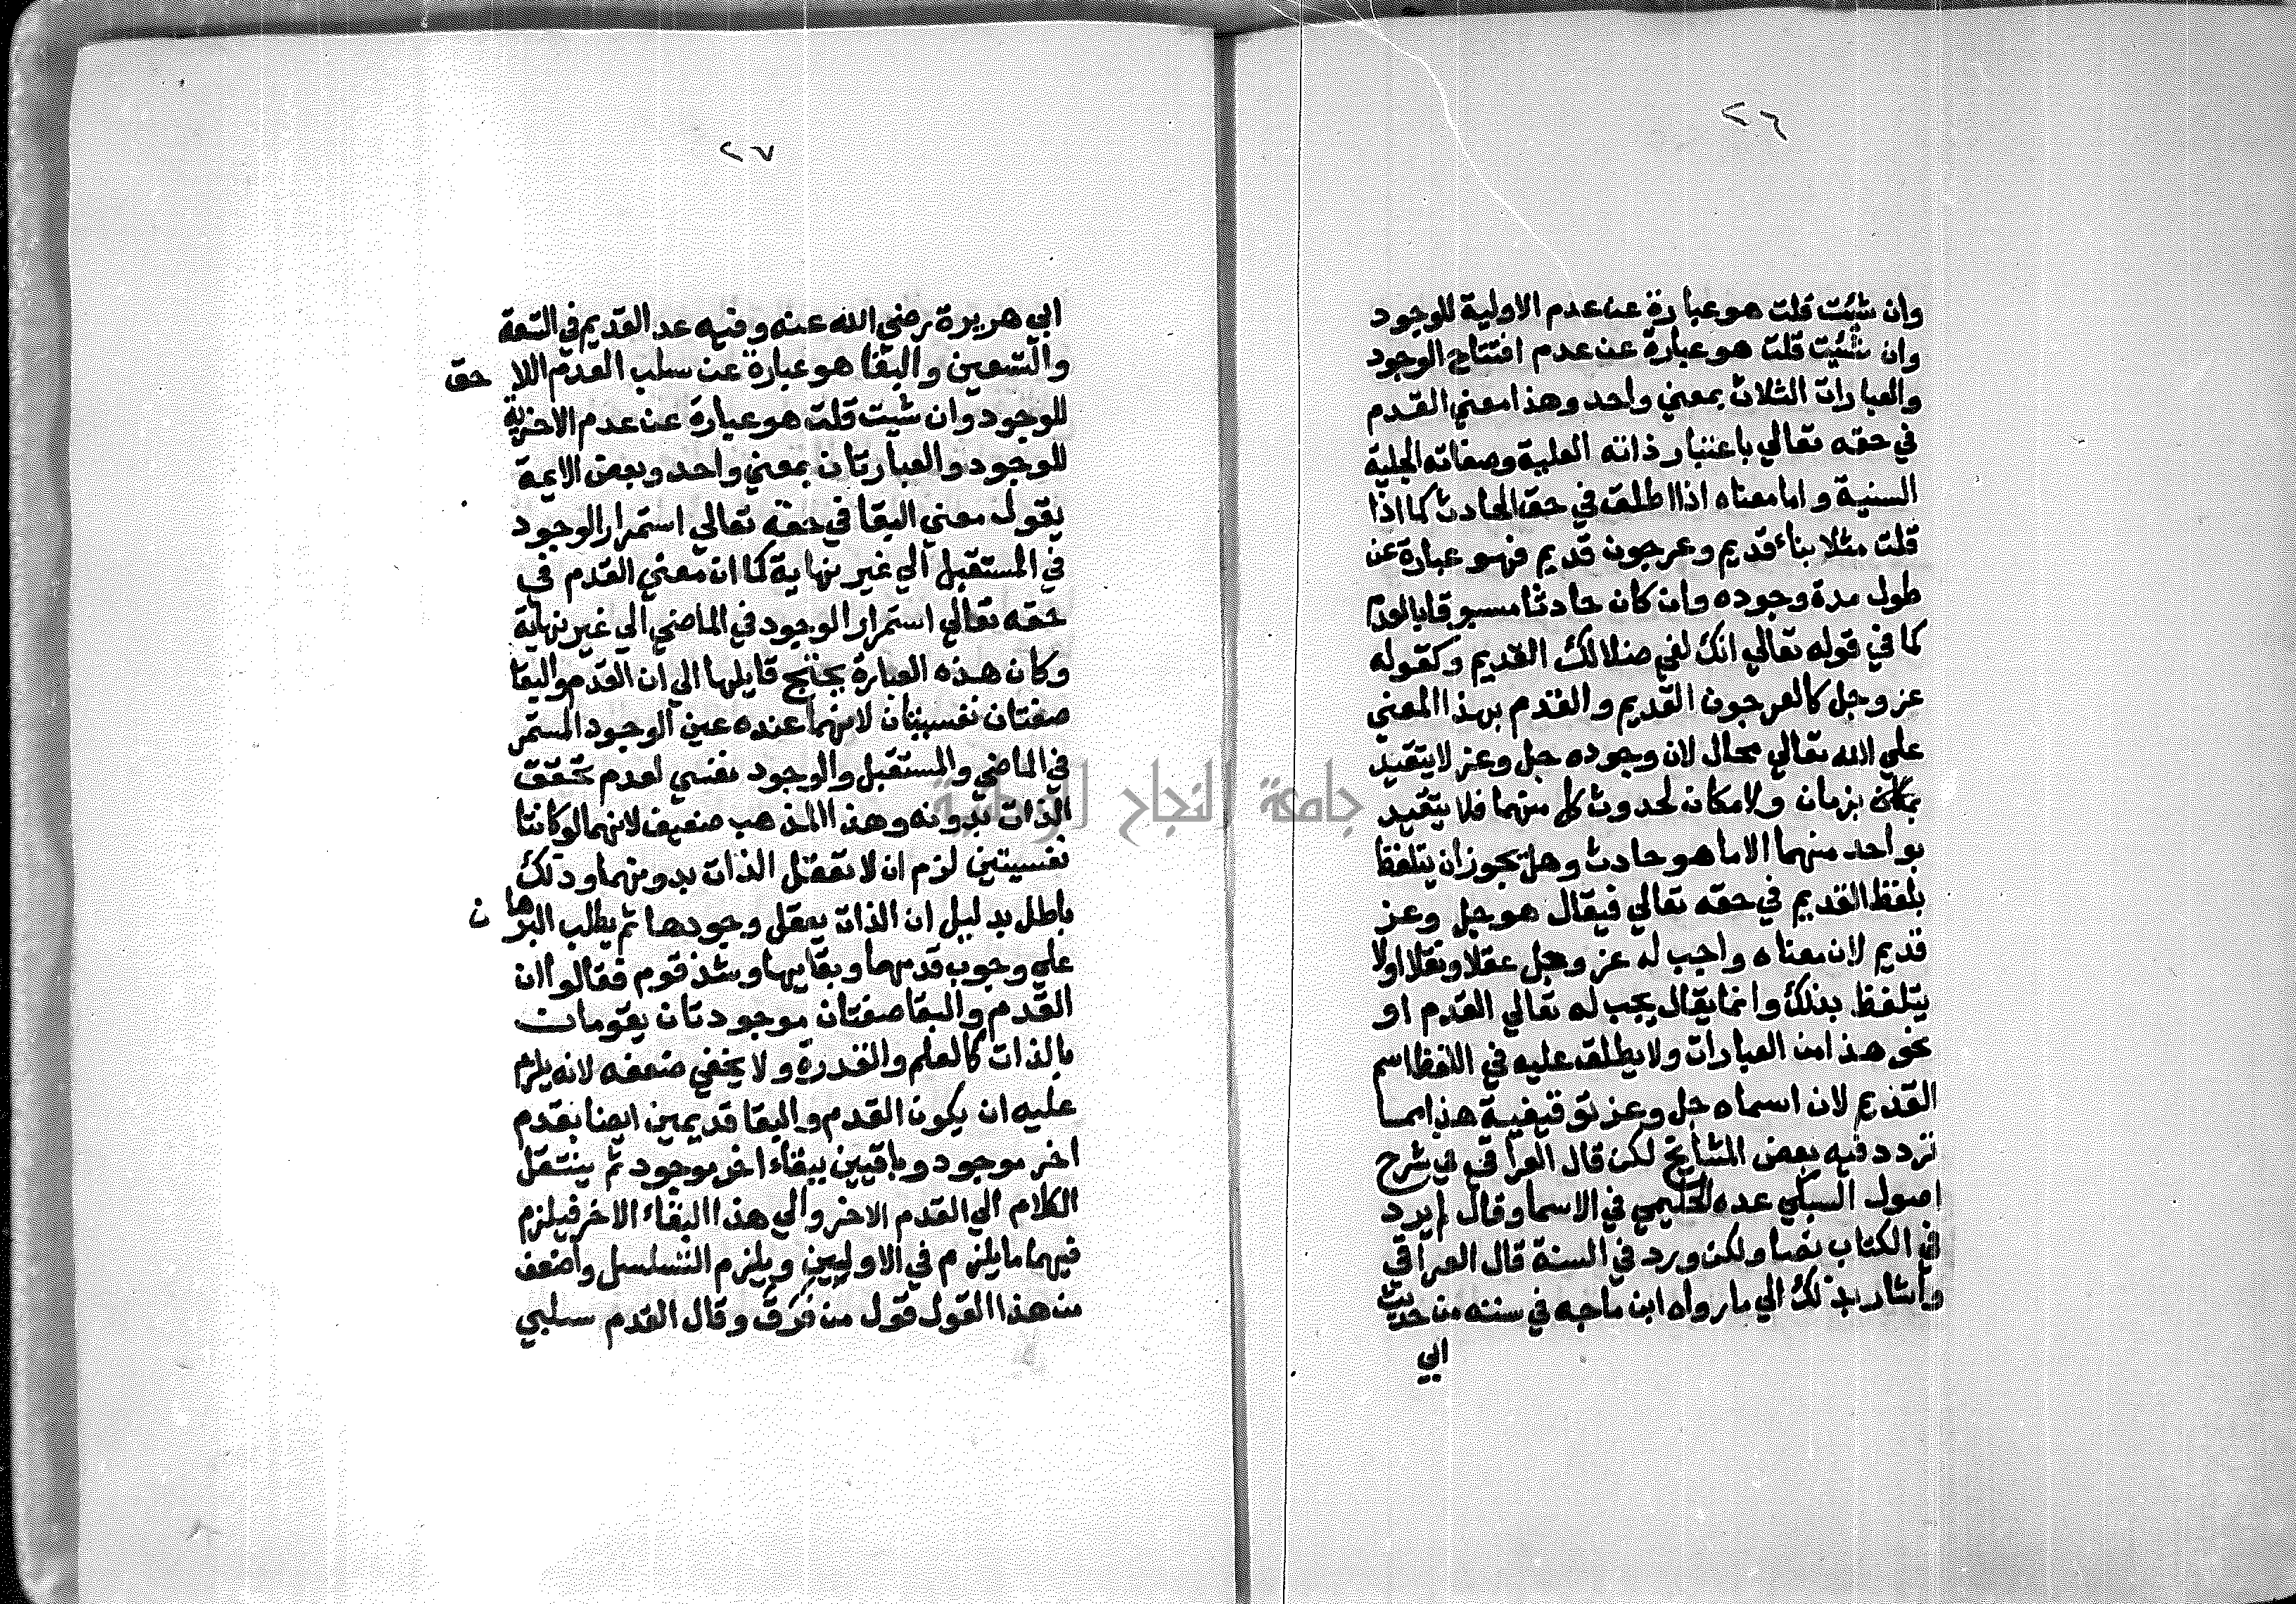 ٢٦
وان شئت قلت هو عبارة عن عدم الاولية للوجود
وان شئت قلت هو عبارة عن عدم افتتاح الوجود
والعبارات الثلاث بمعني واحد وهذا معني القدم
في حقه تعالي باعتبار ذاته العلية وصفاته الجلية
السنية واما معناه اذا اطلق في حق الحادث كما اذا
قلت مثلا بناء قديم وعرجون قديم فهو عبارة عن
طول مدة وجوده وان كان حادثا مسبوقا بالعدم
كما في قوله تعالي انك لفي ضلالك القديم وكقوله
عز وجل كالعرجون القديم والقدم بهذا المعني
علي الله تعالي محال لان وجوده جل وعز لا يتقيد
بزمان ولا مكان لحدوث كل منهما فلا يتقيد
بواحد منهما الا ما هو حادث وهل يجوز ان يتلفظ
بلفظ القديم في حقه تعالي فيقال هو جل وعز
قديم لان معناه واجب له عز وجل عقلا ونقلا او لا
يتلفظ بذلك وانما يقال يجب له تعالي القدم او
نحو هذا من العبارات ولا يطلق عليه في اللفظ اسم
القديم لان اسماه جل وعز توقيفية هذا مما
تردد فيه بعض المشايخ لكن قال العراقي في شرح
اصول السبكي عده الحليمي في الاسما وقال لم يرد
في الكتاب نصا ولكن ورد في السنة قال العراقي
واشار بذلك الي ما رواه ابن ماجه في سننه من حديث
ابي
٢٧
ابي هريرة رضي الله عنه وفيه عد القديم في التسعة
والتسعين والبقا هو عبارة عن سلب العدم اللاحق
للوجود وان شيت قلت هو عبارة عن عدم الاخرية
للوجود والعبارتان بمعني واحد وبعض الايمة
يقول معني البقا في حقه تعالي استمرار الوجود
في المستقبل الي غير نهاية كما ان معني القدم في
حقه تعالي استمرار الوجود في الماضي الي غير نهاية
وكان هذه العبارة يجنح قايلها الي ان القدم والبقا
صفتان نفسيتان لانهما عنده عين الوجود المستمر
في الماضي والمستقبل والوجود نفسي لعدم تحقق
الذات بدونه وهذا المذهب ضعيف لانهما لو كانتا
نفسيتين لزم ان لا تعقل الذات بدونهما وذلك
باطل بدليل ان الذات يعقل وجودها ثم يطلب البرهان
علي وجوب قدمهما وبقايها وشذ قوم فقالوا ان
القدم والبقا صفتان موجودتان يقومان
بالذات كالعلم والقدرة ولا يخفي ضعفه لانه يلزم
عليه ان يكون القدم والبقا قديمين ايضا بقدم
اخر موجود وباقيين ببقاء اخر موجود ثم ينتقل
الكلام الي القدم الاخر والي هذا البقاء الاخر فيلزم
فيهما ما يلزم في الاوليين ويلزم التسلسل واضعف
من هذا القول قول من فرق وقال القدم سلبي
جامعة النجاح الوطنية